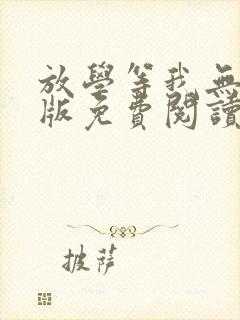 放學等我無
版免費閱讀
披薩